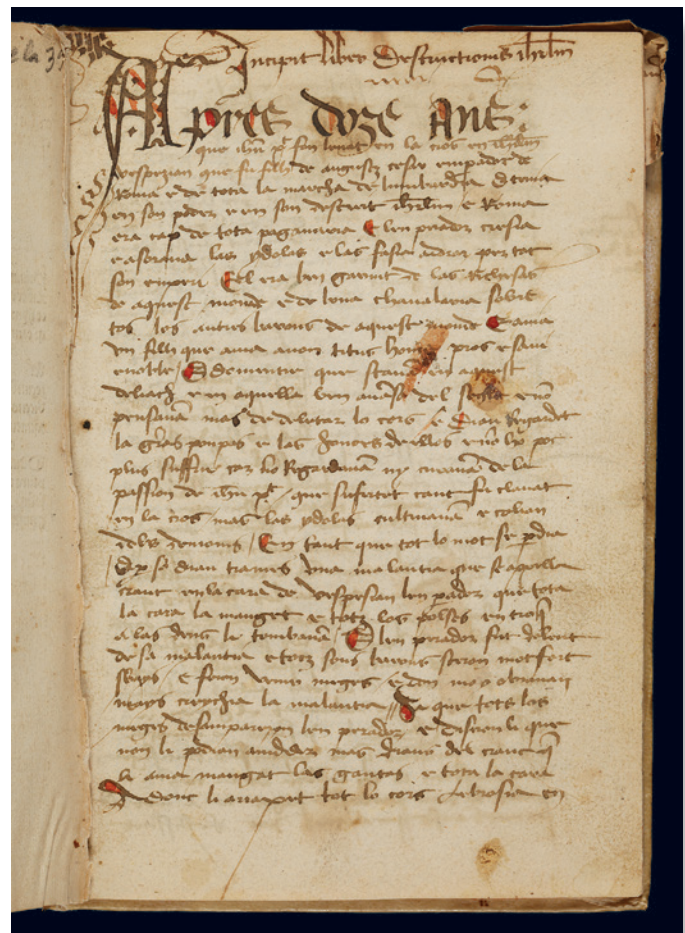 Incipit liber Destructionis ihrlm
Apres doze ans
que ihu xpi fon leuat en la cros en ihrlm
vespezian que fu filh de august cesar emperador de
Roma e de tota la marcha de lombardia E tenia
en son poder e en son destreit ihrlm e Roma
era cap de tota paganuria E lenperador cresia
e asorana las ydolas e las fasia adorar per tot
son emperi E el era ben garnit de las Riqesas
de aquest monde e de bona chaualaria sobre
tos los autres barons de aqueste monde E auia
vn filh que auia anom titus home pros e saui
e noble E dementre que stauan en aquest
deliech e en aquella ben anansa del segle e no
pensauan mas de delectar lo cors e
la grans ponpas e las honors de ellos e no
plus suffrir car no Regardauan ny curauan de la
passion de ihu xpi que sufertet cant fu clauat
en la cros mas las ydolas cultiuauan e colian
dels demonis En tant que tot lo mot se perdia
E per so dieu trames vna malautia que se apella
crant en la cara de vespesian lenperador que tota
la cara la manget e totz los polses entroq
a las dens li tombauan E lenperador fut dolent
de sa malautia e totz sons barons foron mot fort
e foron venir meges e don may obrauan
mays creyhia la malautia Sa que tots los
meges desampareron lenperador e diseron li que
non li podian aiudar mas drans del cranc q
li auia mangat las gautas e tota la cara
Adonc li anaxet tot lo cors lebrosia en